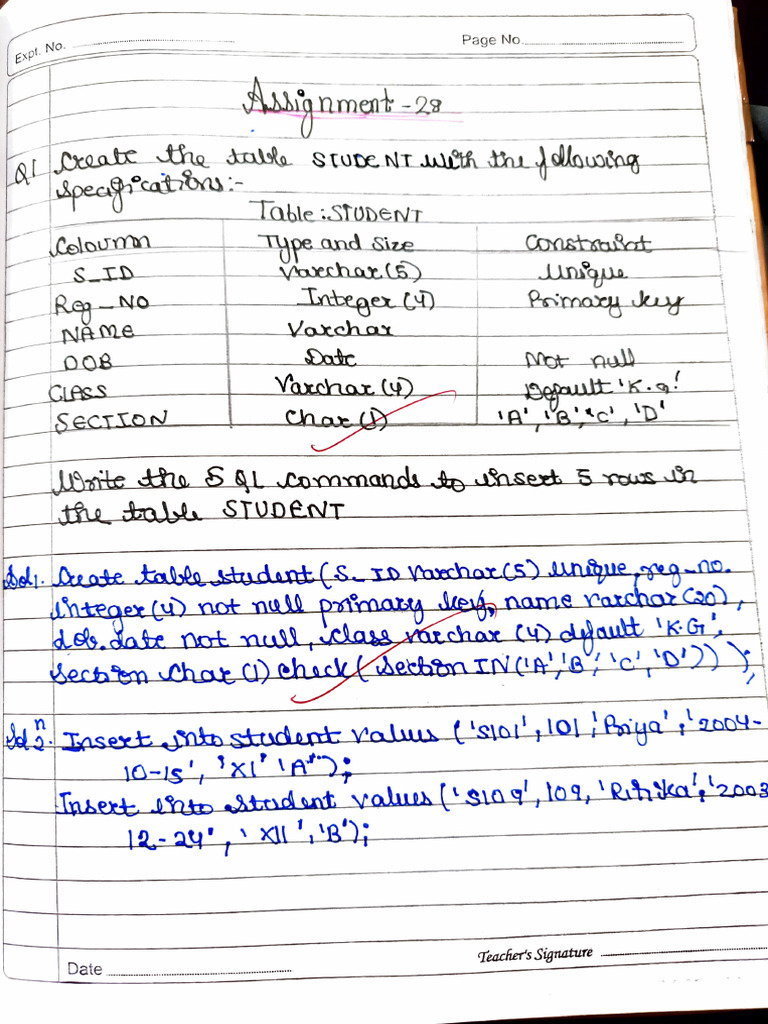 Expt. No. Page No.
Assignment - 28
Q1 Create the table STUDENT with the following
specifications:-
Table: STUDENT
Coloumn Type and Size Constraint
S_ID Varchar(5) Unique
Reg_NO Integer (4) Primary key
NAME Varchar
DOB Date Not null
CLASS Varchar (4) Default 'K.G'
SECTION Char (1) 'A', 'B', 'C', 'D'
Write the SQL commands to insert 5 rows in
the table STUDENT
Sol1. Create table student (S_ID varchar(5) unique, reg_no.
integer(4) not null primary key, name varchar(20),
dob.date not null, class varchar (4) default 'K.G',
section char (1) check (section IN ('A', 'B', 'C', 'D')) );
Soln2. Insert into student values ('S101', 101, 'Priya', '2004-
10-15', 'XI' 'A');
Insert into student values ('S109', 109, '2003
12-24', 'XII', 'B');
Date Teacher's Signature